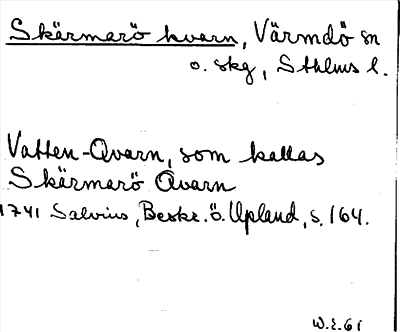 Skärmarö kvarn, Värmdö sn
o. skg, Sthlms l.
Vatten-Qvarn, som kallas
Skärmarö Qvarn
1741 Salvius, Beskr. ö. Upland, s. 164.
W.E. 61